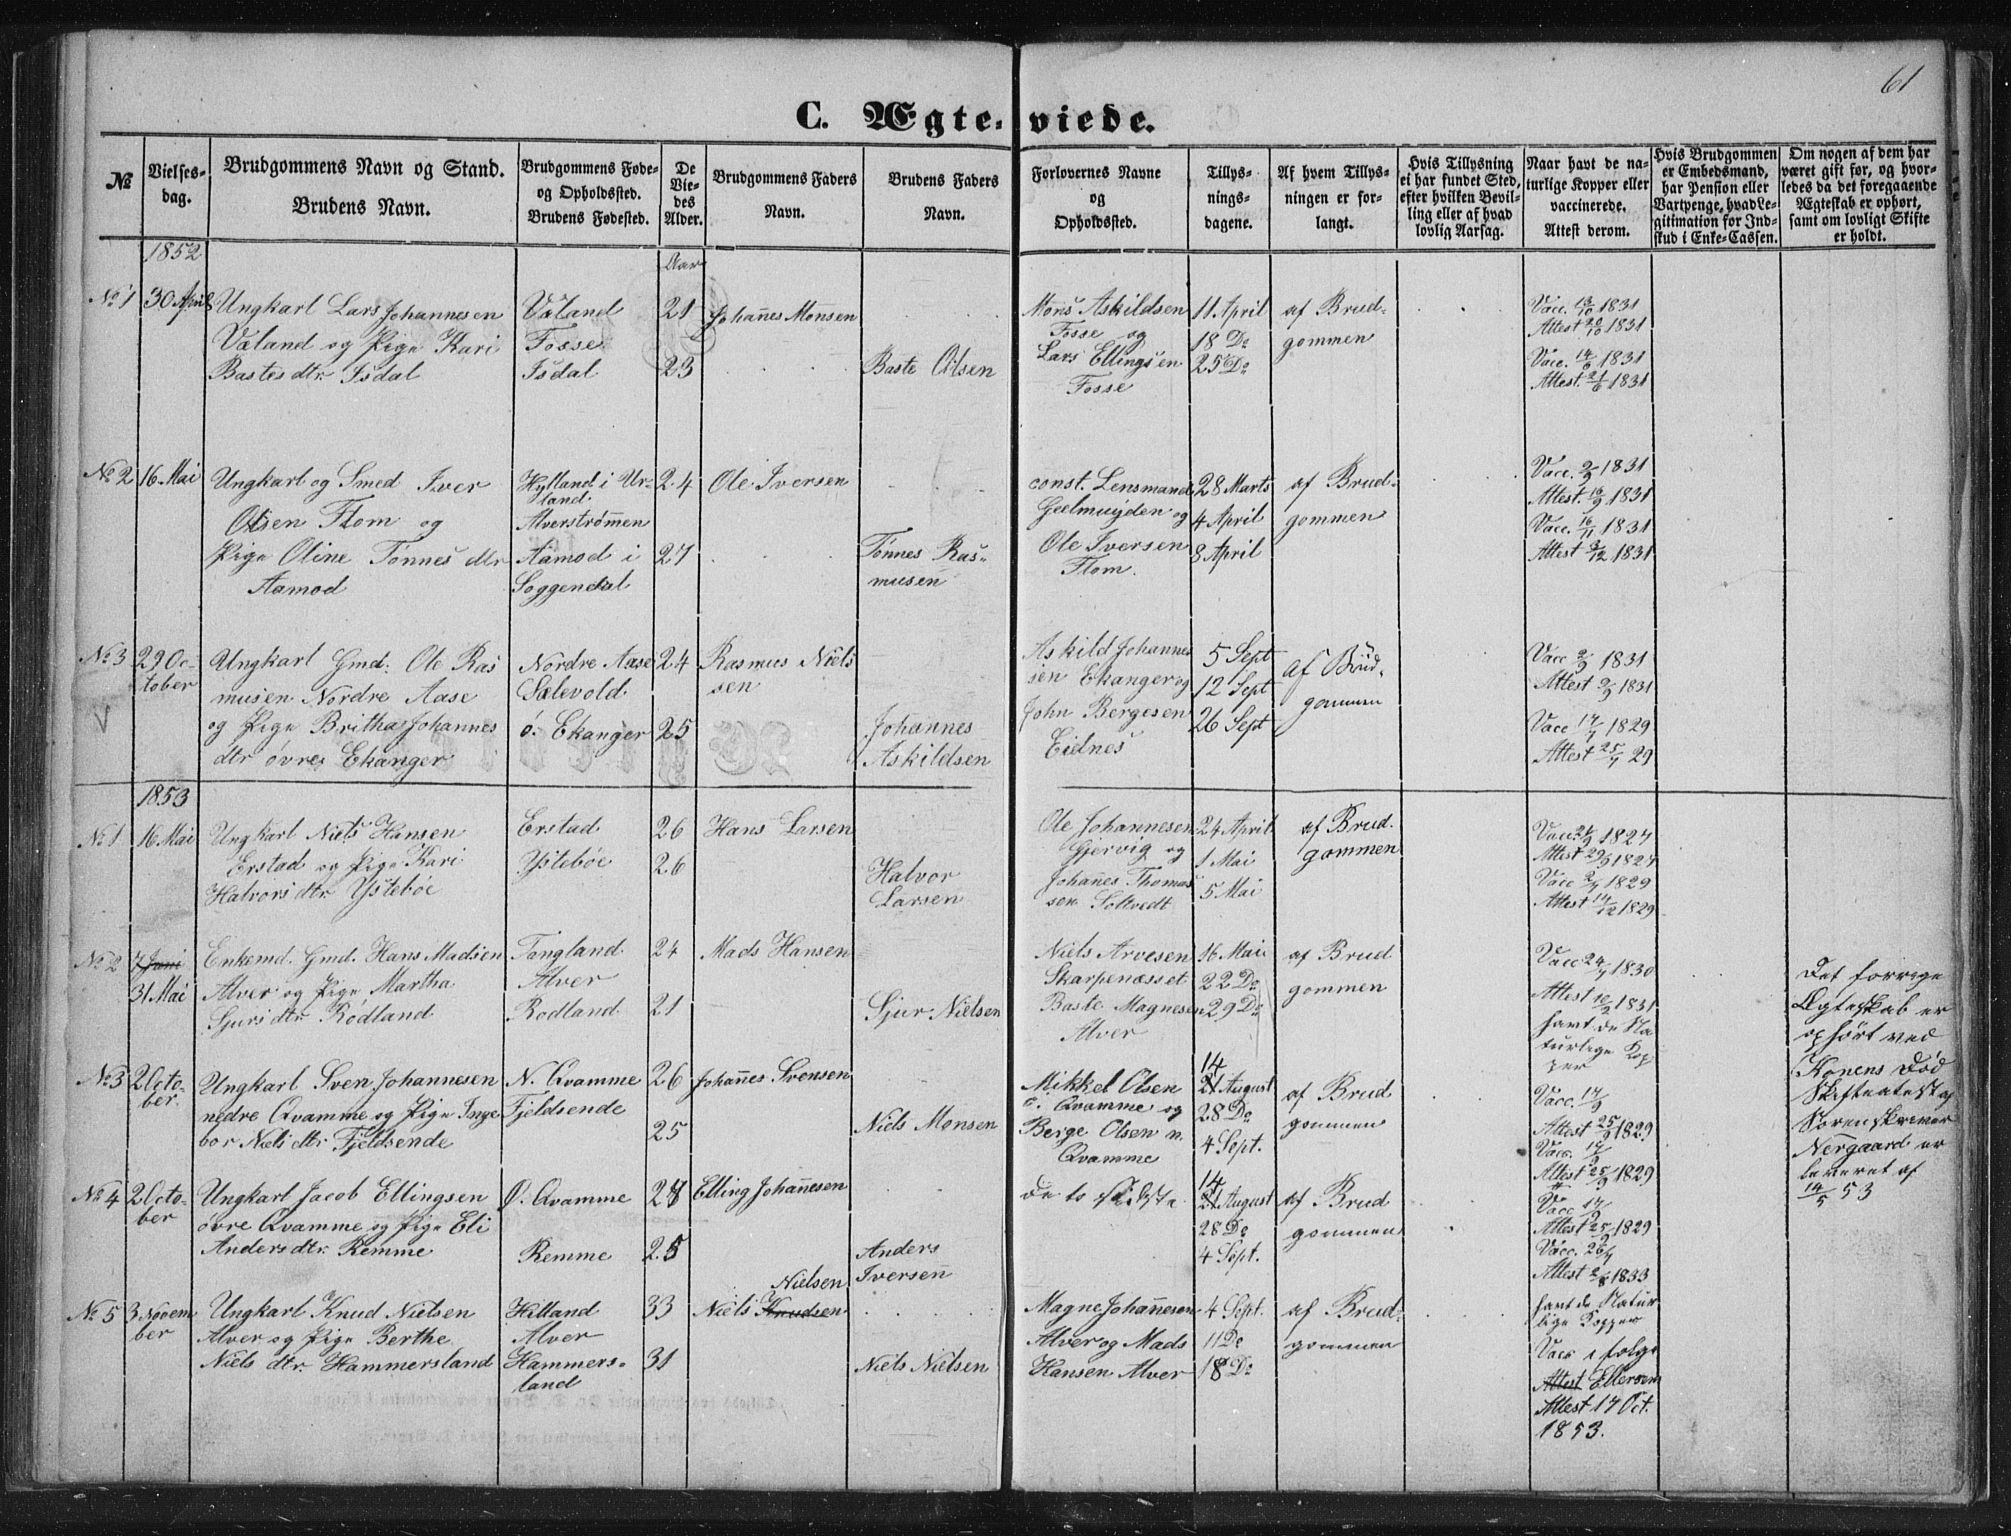 61
C. Ægteviede.
№
Vielsesdag.
Brudgommens Navn og Stand.
Brudens Navn.
Brudgommens Føde-
og Opholdssted.
Brudens Fødested.
De
Vie-
des
Alder.
Brudgommens Faders
Navn.
Brudens Faders
Navn.
Forlovernes Navne
og
Opholdssted.
Tillys-
nings-
dagene.
Af hvem Tillys-
ningen er for-
langt.
Hvis Tillysning
ei har fundet Sted,
efter hvilken Bevil-
ling eller af hvad
lovlig Aarsag.
Naar havt de na-
turlige Kopper eller
vaccinerede.
Attest derom.
Hvis Brudgommen
er Embedsmand,
har Pension eller
Vartpenge, hvad Le-
gitimation for Ind-
skud i Enke-Cassen.
Om nogen af dem har
været gift før, og hvor-
ledes da det foregaaende
Ægteskab er ophørt,
samt om lovligt Skifte
er holdt.
1852
Aar
No 1
30 April
Ungkarl Lars Johannesen
Væland og Pige Kari
Bastes dtr Isdal
Væland
Fosse
Isdal
21
23
Johañes Monsen
Baste Olsen
Mons Askildsen
Fosse og
Lars Ellingsen
Fosse
11 April
18 Do
25 Do
af Brud-
gommen
Vacc. 13/10 1831
Attest 20/10 1831
Vacc. 14/6 1831
Attest. 21/6 1831
No 2
16 Mai
Ungkarl og Smed Iver
Olsen Flom og
Pige Oline Tønnes dtr
Aamod
Hylland i Ur-
land
Alverstrømmen
Aamod i
Soggendal
24
27
Ole Iversen
Tønnes Ras-
musen
const. Lensmand
Geelmuyden og
Ole Iversen
Flom.
28 Marts
4 April
8 April
af Brud-
gommen
Vacc. 2/9 1831
Attest. 16/9 1831
Vacc. 16/11 1831
Attest 3/12 1831
No 3
29 Oc-
tober
Ungkarl Gmd. Ole Ras
musen Nordre Aase
og Pige Britha Johannes
dtr øvre Ekanger
Nordre Aase
Sælevold
ø. Ekanger
24
25
Rasmus Niels
sen
Johannes
Askildsen
Askild Johannes
sen Ekanger og
John Bergesen
Eidnes
5 Sept
12 Sept
26 Sept
af Brud-
gommen
Vacc 2/9 1831
Attest 9/9 1831
Vacc 17/7 1829
Attest 25/7 29
1853
No 1
16 Mai
Ungkarl Niels Hansen
Erstad og Pige Kari
Halvors dtr Ystebøe
Erstad
Ystebøe
26
26
Hans Larsen
Halvor
Larsen
Ole Johannesen
Gjervig og
Johañes Thomas
sen Soltvedt
24 April
1 Mai
5 Mai
af Brud.
gommen
Vacc. 21/9 1827
Attest 29/9 1827
Vacc 2/7 1829
Attest 14/12 1829
No 2
7 Juni
31 Mai
Enkemd. Gmd. Hans Madsen
Alver og Pige Martha
Sjurs dtr Rødland
Tangland
Alver
Rodland
24
21
Mads Hansen
Sjur Nielsen
Niels Arvesen
Skarpenæsset
Baste Magnesen
Alver
16 Mai
22 Do
29 Do
af Brud
gommen
Vacc 24/7 1830
Attest 10/2 1831
havt de Na
turlige Kop
per
Det forrige
Ægteskab er
ophørt ved
Konens Død
Skifteatest af
Sorenskriver
Nørgaard er
leveret af
14/5 53
No 3
2 Octo-
ber.
Ungkarl Sven Johannesen
nedre Qvamme og Pige Inge
bor Niels dtr Fjeldsende
N. Qvamme
Fjeldsende
26
25
Johañes Svensen
Niels Monsen
Mikkel Olsen
ø. Qvamme og
Berge Olsen n.
Qvamme
14
21 August
28 Do
4 Sept.
af Brud
gommen
Vacc. 17/9
Attest 25/9 1829
Vacc. 17/9
Attest 25/9 1829
No 4
2 Octo-
ber
Ungkarl Jacob Ellingsen
øvre Qvamme og Pige Eli
Anders dtr Remme
Ø. Qvamme
Remme
27
25
Elling Johañesen
Anders
Iversen
de to sidste
14
21 August
28 Do
4 Sept.
af Brud
gommen
Vacc 17/9
Attest 25/9 1829
Vacc. 26/7
Attest 2/8 1833
No 5
3 Novem
ber
Ungkarl Knud Nielsen
Alver og Pige Berthe
Niels dtr Hammersland
Hilland
Alver
Hammers-
land
33
31
Nielsen
Niels Knudsen
Niels Nielsen
Magne Johañesen
Alver og Mads
Hansen Alver
4 Sept.
11 Do
18 Do
af Brud-
gommen
havt de Natur
lige Kopper
Vacc i følge
Attest Ellersen
Attest 17 Oct.
1853.